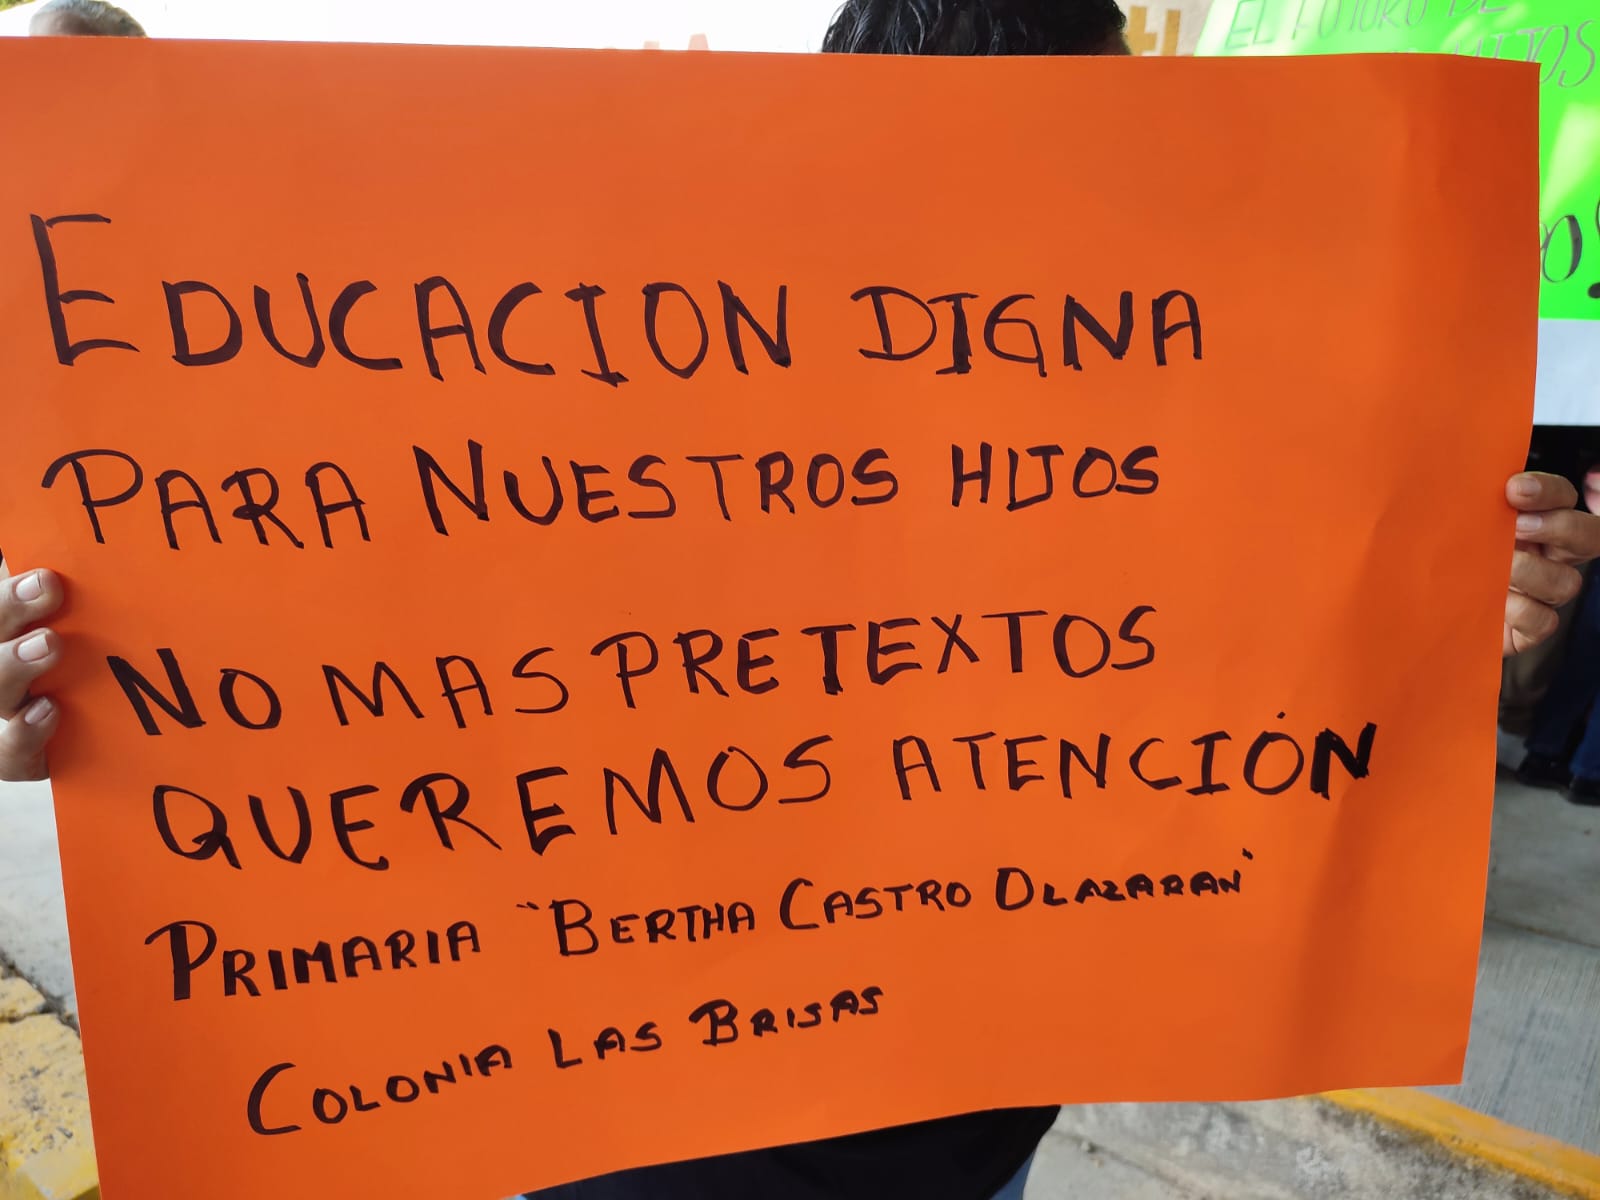 EDUCACION DIGNA
PARA NUESTROS HIJOS
NO MAS PRETEXTOS
QUEREMOS ATENCIÓN
PRIMARIA "BERTHA CASTRO OLAZARAN"
COLONIA LAS BRISAS
EL FUTURO DE
HIJOS